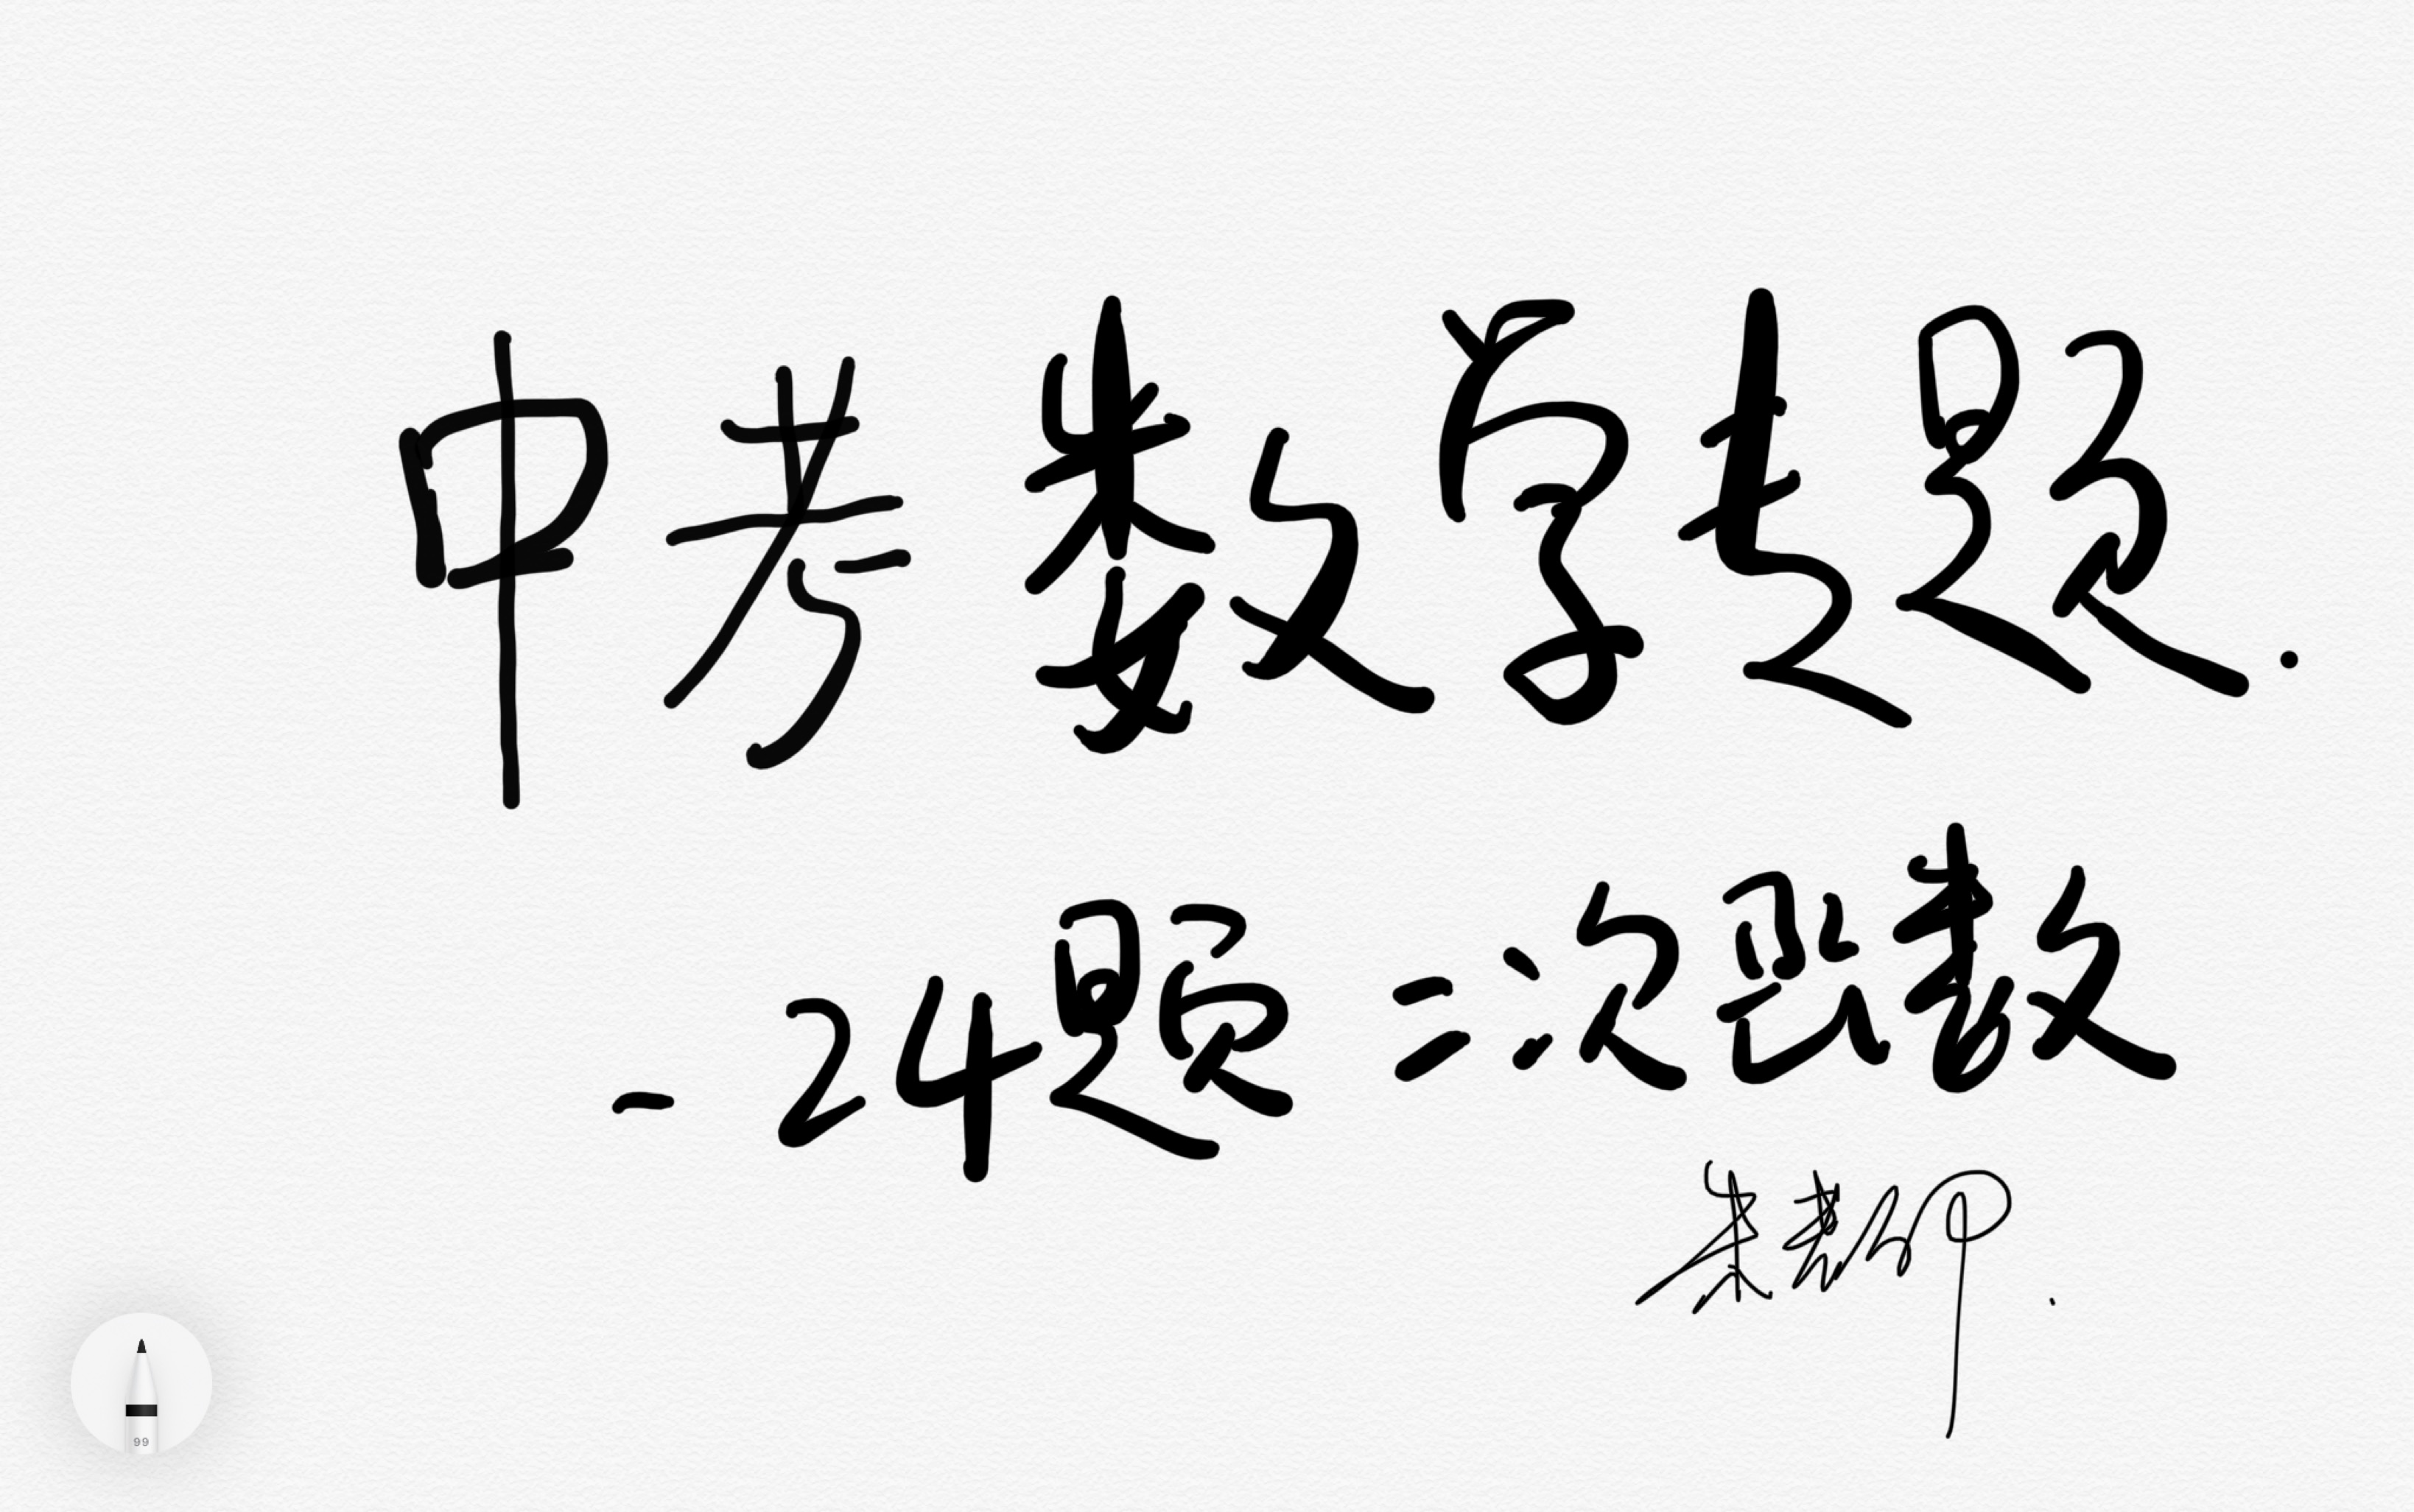 中考数学专题.
- 24题 二次函数
朱老师.
99